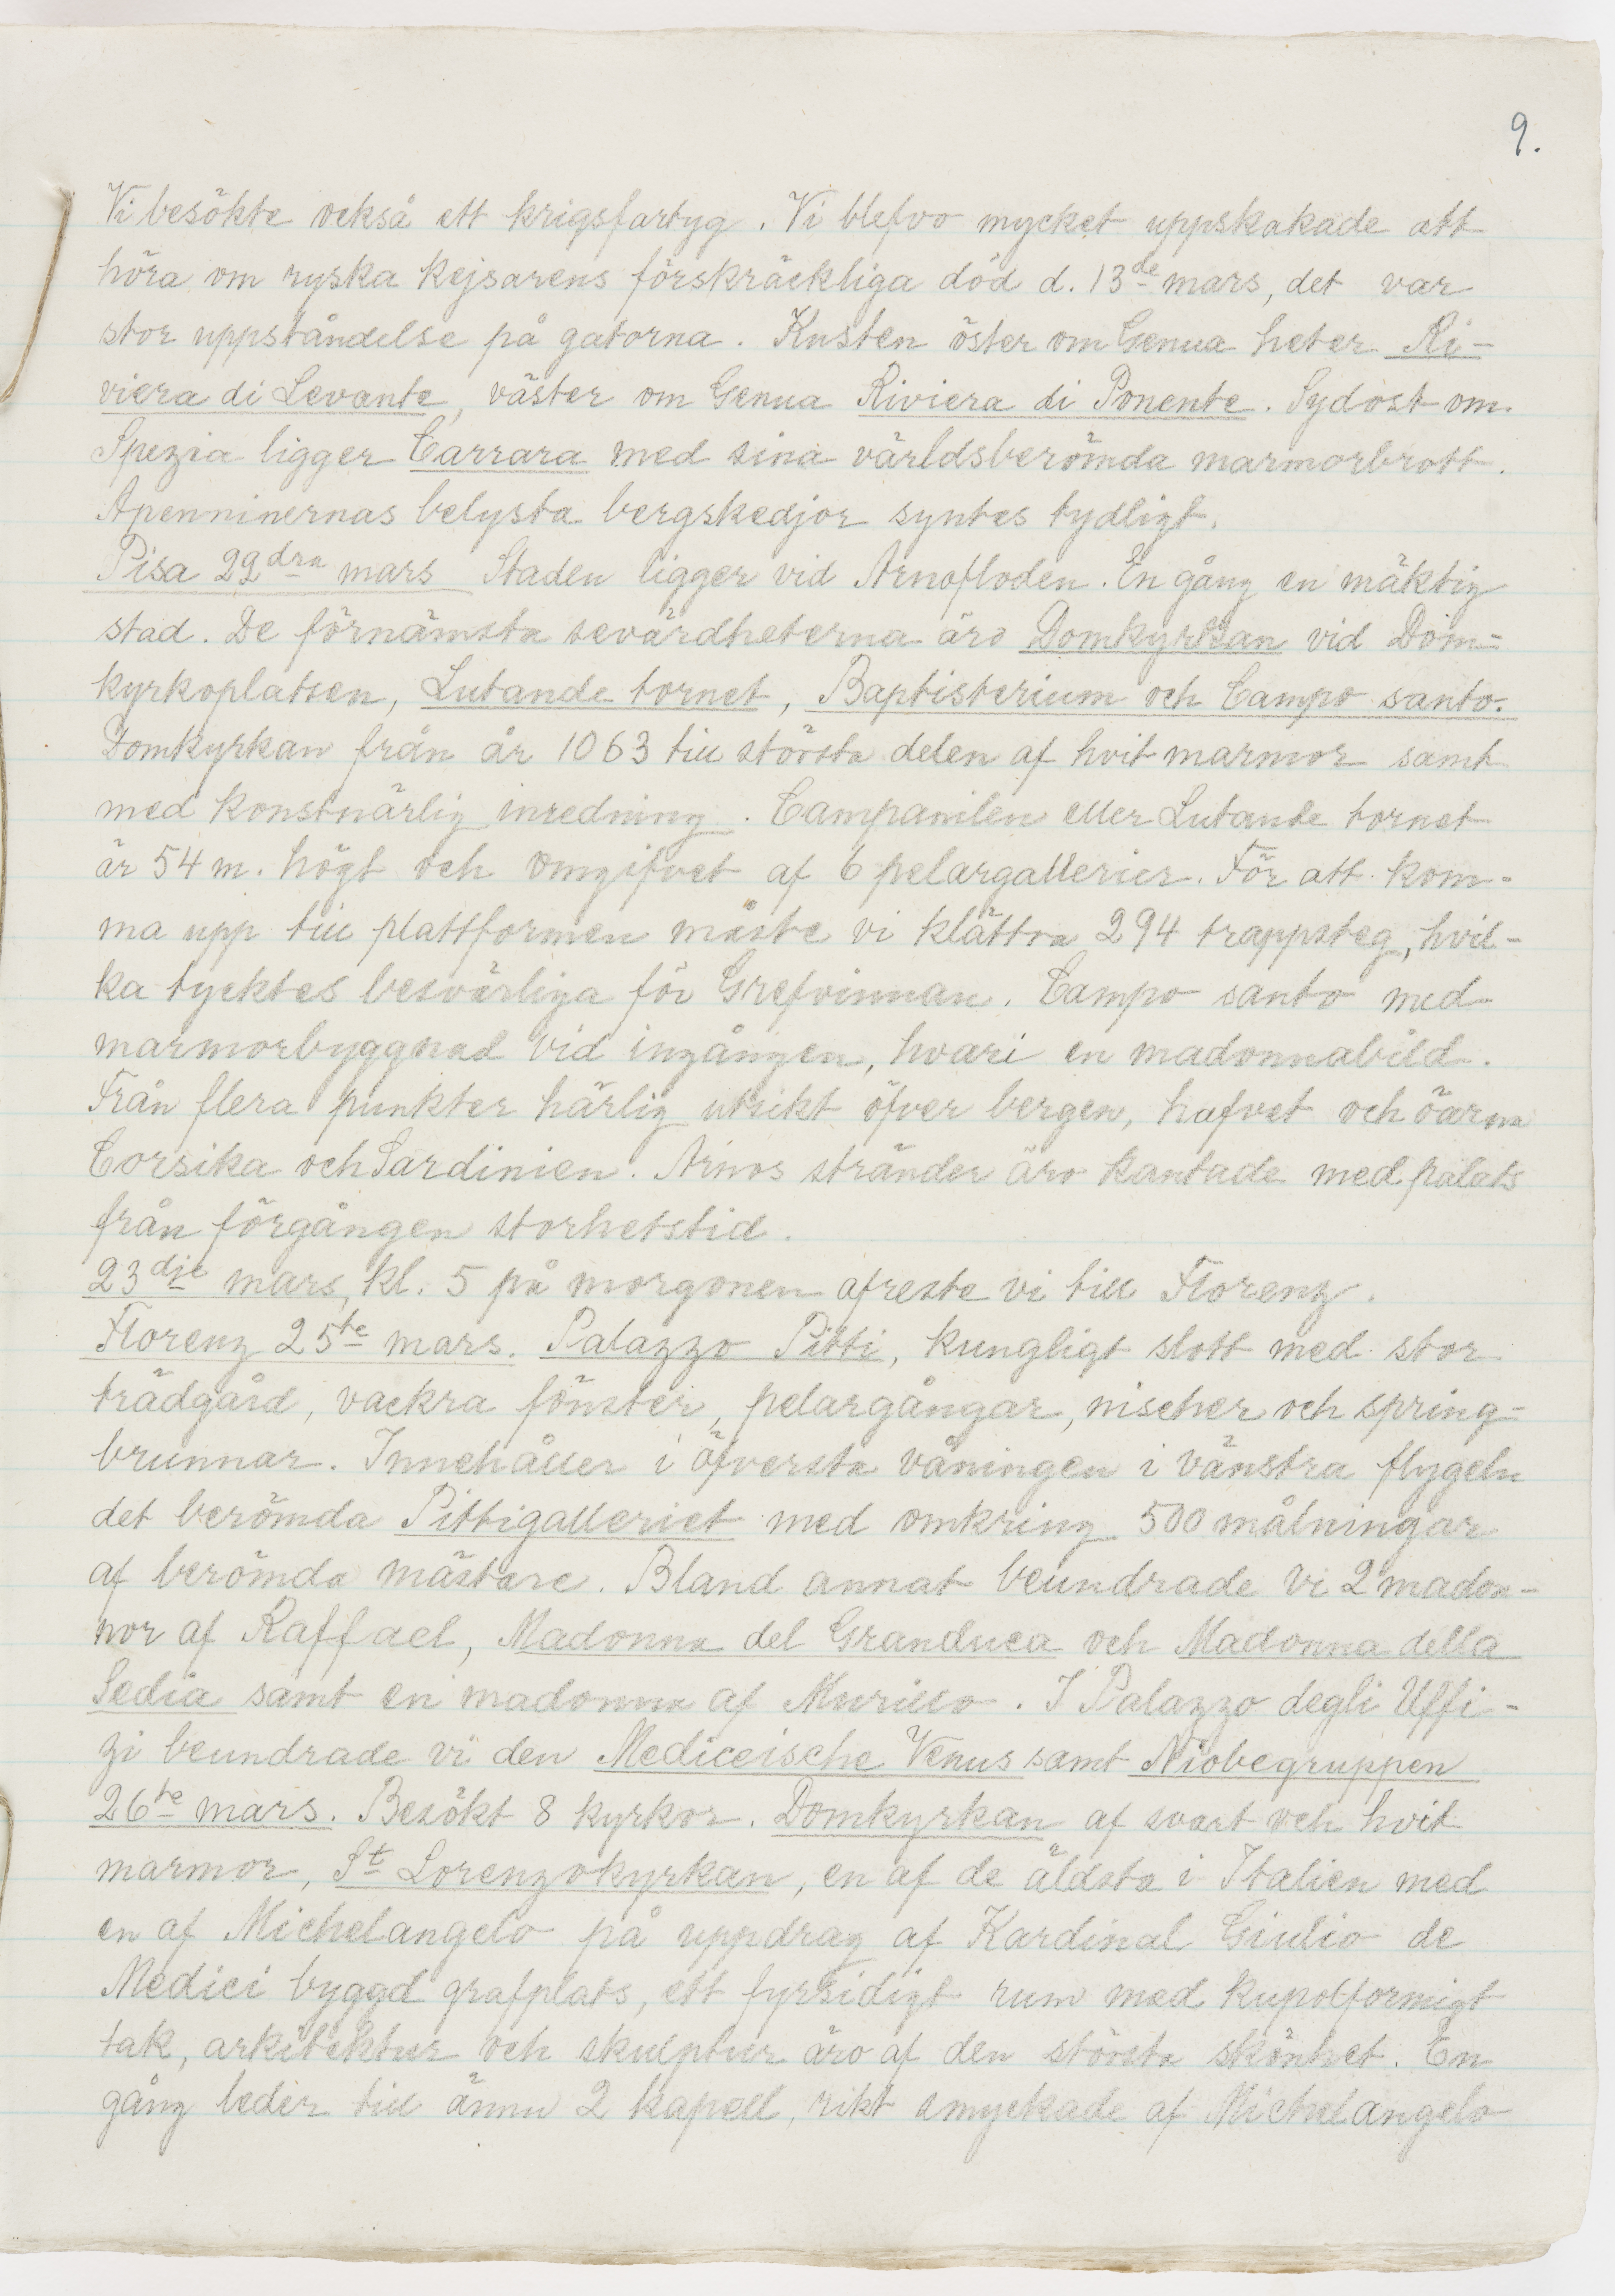 9.
Vi besökte också ett krigsfartyg. Vi blefvo mycket uppskakade att
höra om ryska kejsarens förskräckliga död d. 13de mars, det var
stor uppståndelse på gatorna. Kusten öster om Genua heter Ri-
viera di Levante, väster om Genua Riviera di Ponente. Sydost om
Spezia ligger Carrara med sina världsberömda marmorbrott.
Apenninernas belysta bergskedjor syntes tydligt.
Pisa 22dra mars Staden ligger vid Arnofloden. En gång en mäktig
stad. De förnämsta sevärdheterna äro Domkyrkan vid Dom-
kyrkoplatsen, Lutande tornet, Baptisterium och Campo santo.
Domkyrkan från år 1063 till största delen af hvit marmor samt
med konstnärlig inredning. Campanilen eller Lutande tornet
är 54 m. högt och omgifvet af 6 pelargallerier. För att kom-
ma upp till plattformen måste vi klättra 294 trappsteg, hvil-
ka tycktes besvärliga för Grefvinnan. Campo santo med
marmorbyggnad vid ingången, hvari en madonnabild.
Från flera punkter härlig utsikt öfver bergen, hafvet och öarna
Corsika och Sardinien. Arnos stränder äro kantade med palats
från förgången storhetstid.
23dje mars, kl. 5 på morgonen afreste vi till Florenz.
Florenz 25te mars. Palazzo Pitti, kungligt slott med stor
trädgård, vackra fönster, pelargångar, nischer och spring-
brunnar. Innehåller i öfversta våningen i vänstra flygeln
det berömda Pittigalleriet med omkring 500 målningar
af berömda mästare. Bland annat beundrade vi 2 madon-
nor af Raffael, Madonna del Granduca och Madonna della
Sedia samt en madonna af Murillo. I Palazzo degli Uffi-
zi beundrade vi den Mediceische Venus samt Niobegruppen
26te mars. Besökt 8 kyrkor. Domkyrkan af svart och hvit
marmor, St Lorenzokyrkan, en af de äldsta i Italien med
en af Michelangelo på uppdrag af Kardinal Giulio de
Medici byggd grafplats, ett fyrsidigt rum med kupolformigt
tak, arkitektur och skulptur äro af den största skönhet. En
gång leder till ännu 2 kapell, rikt smyckade af Michelangelo